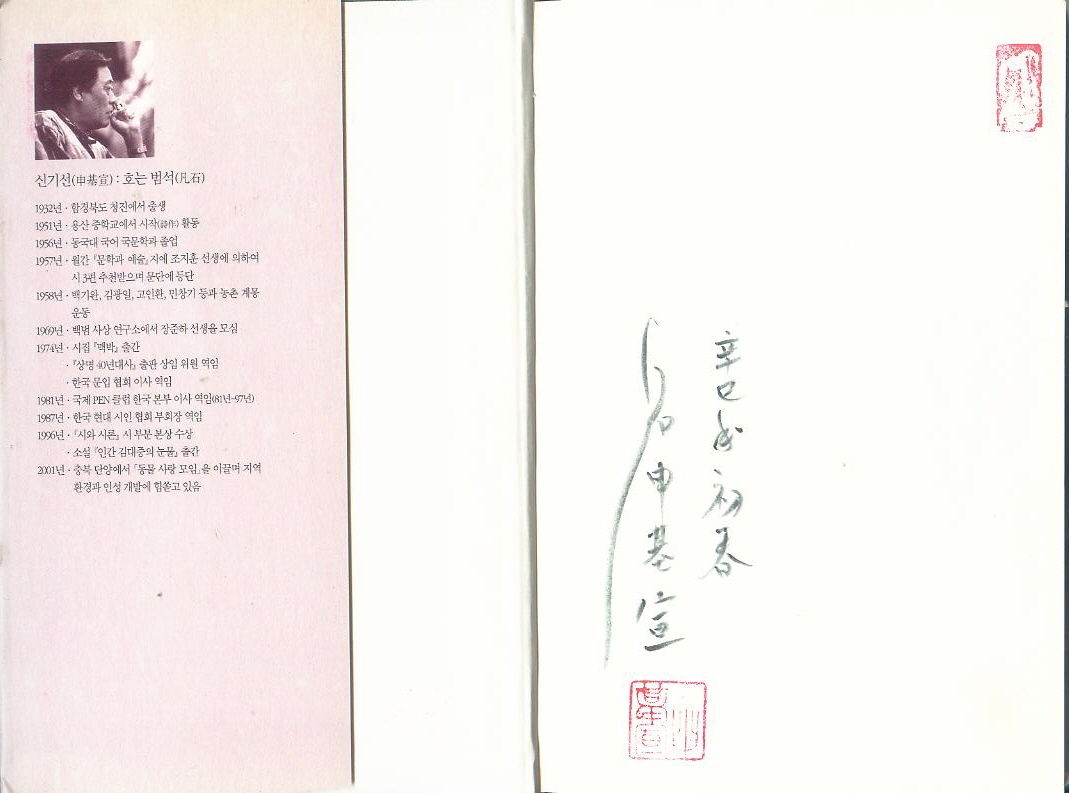 신기선(申基宣) : 호는 범석(凡石)
1932년 · 함경북도 청진에서 출생
1951년 · 용산 중학교에서 시작(詩作) 활동
1956년 · 동국대 국어 국문학과 졸업
1957년 · 월간 『문학과 예술』지에 조지훈 선생에 의하여
시 3편 추천받으며 문단에 등단
1958년 · 백기완, 김광일, 고인환, 민창기 등과 농촌 계몽
운동
1969년 · 백범 사상 연구소에서 장준하 선생을 모심
1974년 · 시집 『맥박』 출간
· 『상명 40년대사』 출판 상임 위원 역임
· 한국 문입 협회 이사 역임
1981년 · 국제 PEN 클럽 한국 본부 이사 역임(81년-97년)
1987년 · 한국 현대 시인 협회 부회장 역임
1996년 · 『시와 시론』 시 부문 본상 수상
· 소설 『인간 김대중의 눈물』 출간
2001년 · 충북 단양에서 「동물 사랑 모임」을 이끌며 지역
환경과 인성 개발에 힘쏟고 있음
辛巳 初春
申基宣